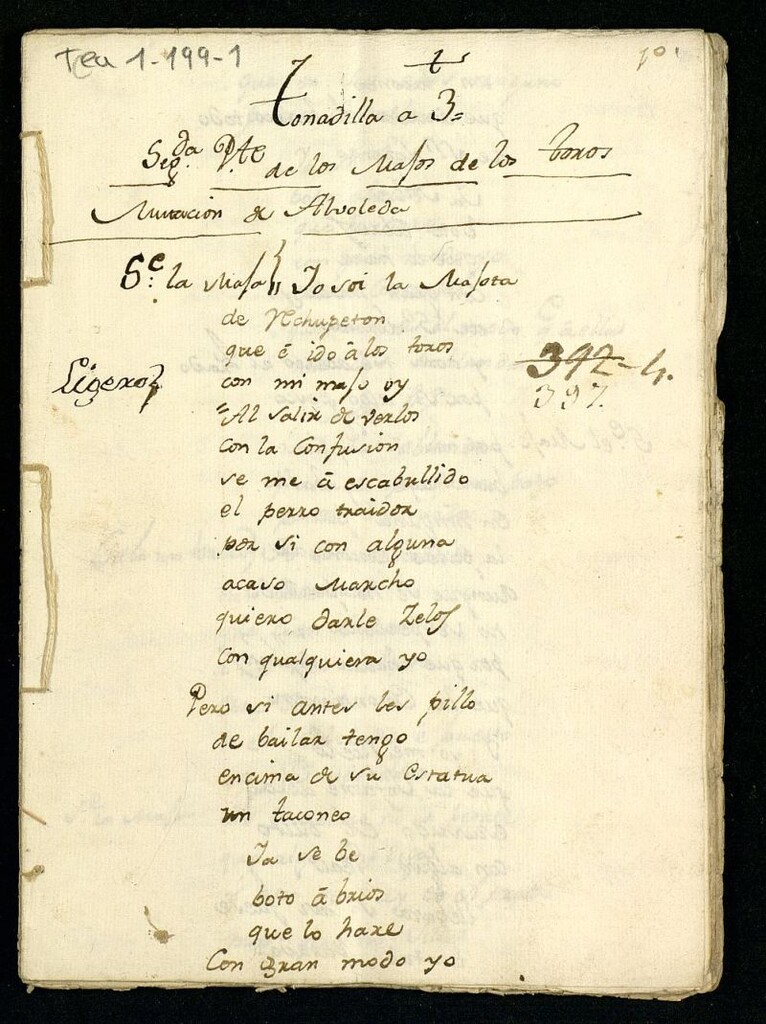 Tea 1-199-1
1º
t
Tonadilla a 3=
Segda Pte de los Majos de los toros
Mutacion de Alvoleda
Se la Maja Io soi la Majota
de Mchupeton
que ē ido â los toros
392-4.
Ligero
con mi majo oy
397.
=Al salir de verlos
con la Confusion
se me ā escabullido
el perro traidor
por si con alguna
acaso Marcho
quiero darle Zelos
con qualquiera yo
Pero si antes les pillo
de bailar tengo
encima de su estatua
un taconeo
Ia se be
boto ā brios
que lo hare
Con gran modo yo